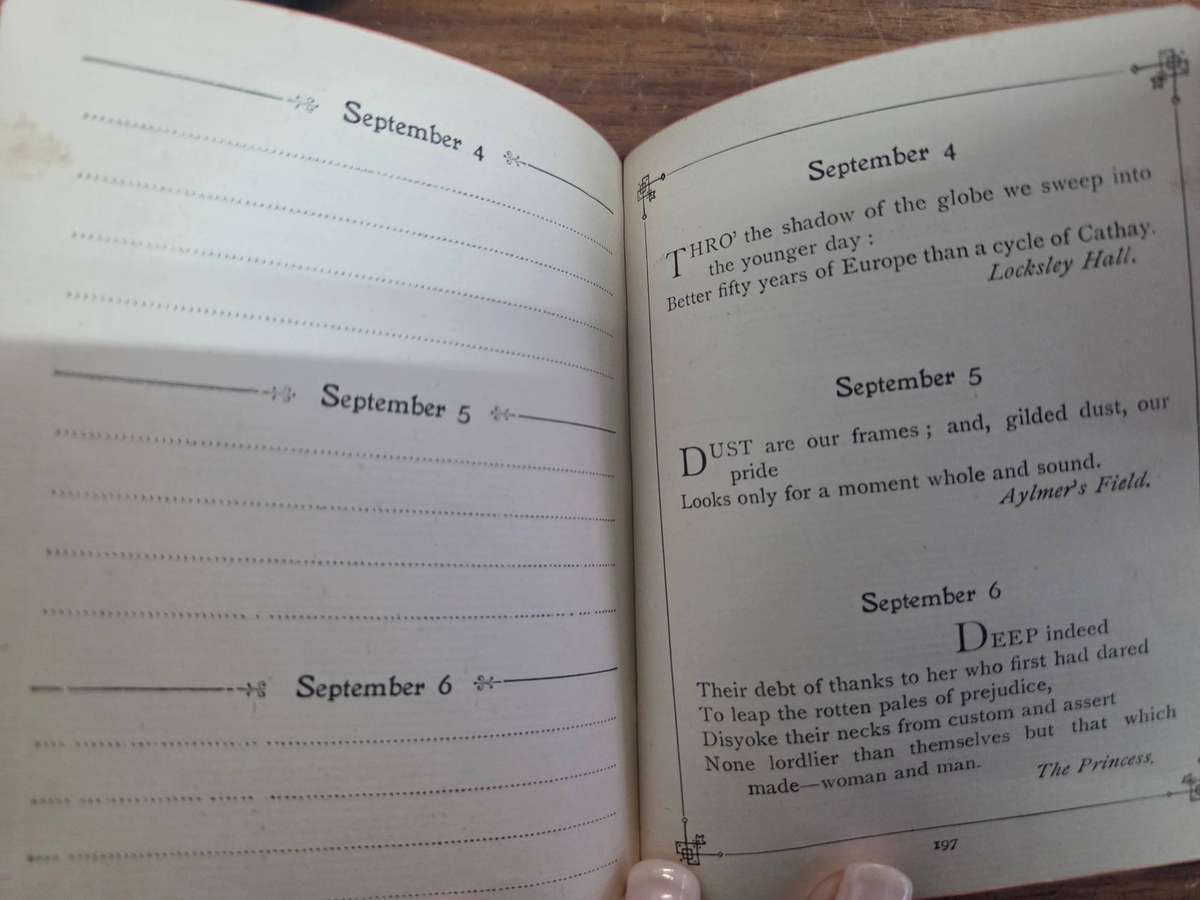 September 4
September 5
September 6
September 4
THRO' the shadow of the globe we sweep into
the younger day :
Better fifty years of Europe than a cycle of Cathay.
Locksley Hall.
September 5
DUST are our frames ; and, gilded dust, our
pride
Looks only for a moment whole and sound.
Aylmer's Field.
September 6
DEEP indeed
Their debt of thanks to her who first had dared
To leap the rotten pales of prejudice,
Disyoke their necks from custom and assert
None lordlier than themselves but that which
made—woman and man.
The Princess.
197